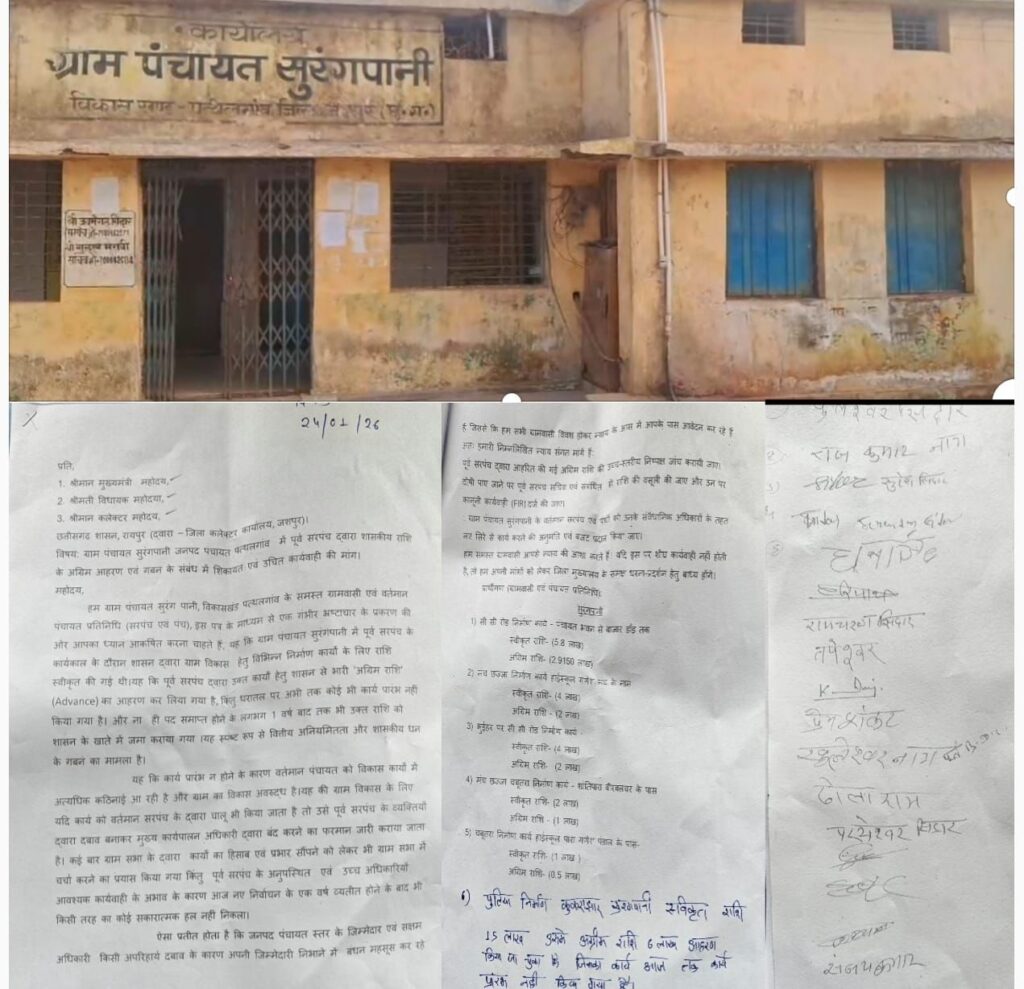 कार्यालय
ग्राम पंचायत सुरंगपानी
विकास खण्ड - पत्थलगांव, जिला
24/01/26
प्रति,
1. श्रीमान मुख्यमंत्री महोदय,
2. श्रीमती विधायक महोदया,
3. श्रीमान कलेक्टर महोदय,
छत्तीसगढ़ शासन, रायपुर (द्वारा – जिला कलेक्टर कार्यालय, जशपुर)।
विषय: ग्राम पंचायत सुरंगपानी जनपद पंचायत पत्थलगांव में पूर्व सरपंच द्वारा शासकीय राशि
के अग्रिम आहरण एवं गबन के संबंध में शिकायत एवं उचित कार्यवाही की मांग।
महोदय,
हम ग्राम पंचायत सुरंग पानी, विकासखंड पत्थलगांव के समस्त ग्रामवासी एवं वर्तमान
पंचायत प्रतिनिधि (सरपंच एवं पंच), इस पत्र के माध्यम से एक गंभीर भ्रष्टाचार के प्रकरण की
ओर आपका ध्यान आकर्षित करना चाहते हैं, यह कि ग्राम पंचायत सुरंगपानी में पूर्व सरपंच के
कार्यकाल के दौरान शासन द्वारा ग्राम विकास हेतु विभिन्न निर्माण कार्यों के लिए राशि
स्वीकृत की गई थी।यह कि पूर्व सरपंच द्वारा उक्त कार्यों हेतु शासन से भारी 'अग्रिम राशि'
(Advance) का आहरण कर लिया गया है, किंतु धरातल पर अभी तक कोई भी कार्य प्रारंभ नहीं
किया गया है। और ना ही पद समाप्त होने के लगभग 1 वर्ष बाद तक भी उक्त राशि को
शासन के खाते में जमा कराया गया ।यह स्पष्ट रूप से वित्तीय अनियमितता और शासकीय धन
के गबन का मामला है।
यह कि कार्य प्रारंभ न होने के कारण वर्तमान पंचायत को विकास कार्यों में
अत्यधिक कठिनाई आ रही है और ग्राम का विकास अवरुद्ध है।यह की ग्राम विकास के लिए
यदि कार्य को वर्तमान सरपंच के द्वारा चालू भी किया जाता है तो उसे पूर्व सरपंच के व्यक्तियों
द्वारा दबाव बनाकर मुख्य कार्यपालन अधिकारी द्वारा बंद करने का फरमान जारी कराया जाता
है। कई बार ग्राम सभा के द्वारा कार्यों का हिसाब एवं प्रभार सौंपने को लेकर भी ग्राम सभा में
चर्चा करने का प्रयास किया गया किंतु पूर्व सरपंच के अनुपस्थित एवं उच्च अधिकारियों
आवश्यक कार्यवाही के अभाव के कारण आज नए निर्वाचन के एक वर्ष व्यतीत होने के बाद भी
किसी तरह का कोई सकारात्मक हल नहीं निकला।
ऐसा प्रतीत होता है कि जनपद पंचायत स्तर के जिम्मेदार एवं सक्षम
अधिकारी किसी अपरिहार्य दबाव के कारण अपनी जिम्मेदारी निभाने में बंधन महसूस कर रहे
हैं जिससे कि हम सभी ग्रामवासी विवश होकर न्याय के आस में आपके पास आवेदन कर रहे हैं
अतः हमारी निम्नलिखित न्याय संगत मांगें हैं:
पूर्व सरपंच द्वारा आहरित की गई अग्रिम राशि की उच्च-स्तरीय निष्पक्ष जांच करायी जाए।
दोषी पाए जाने पर पूर्व सरपंच सचिव एवं संबंधित से राशि की वसूली की जाए और उन पर
कानूनी कार्यवाही (FIR) दर्ज की जाए।
ग्राम पंचायत सुरंगपानी के वर्तमान सरपंच एवं पंचों को उनके संवैधानिक अधिकारों के तहत
नए सिरे से कार्य करने की अनुमति एवं बजट प्रदान किया जाए।
हम समस्त ग्रामवासी आपसे न्याय की आशा करते हैं। यदि इस पर शीघ्र कार्यवाही नहीं होती
है, तो हम अपनी मांगों को लेकर जिला मुख्यालय के समक्ष धरना-प्रदर्शन हेतु बाध्य होंगे।
प्रार्थीगण (ग्रामवासी एवं पंचायत प्रतिनिधि):
सुरंगपानी
1) सी सी रोड निर्माण कार्य - पंचायत भवन से बाजार डाँड़ तक
स्वीकृत राशि- (5.8 लाख)
अग्रिम राशि- (2.9150 लाख)
2) मंच छज्जा निर्माण कार्य हाईस्कूल गणेश मंच के पास
स्वीकृत राशि- (4 लाख)
अग्रिम राशि - (2 लाख)
3) भुईहर पर सी सी रोड निर्माण कार्य -
स्वीकृत राशि- (4 लाख)
अग्रिम राशि- (2 लाख)
4) मंच छज्जा चबूतरा निर्माण कार्य - शांतिपारा बीरबलघर के पास
स्वीकृत राशि- (2 लाख)
अग्रिम राशि - (1 लाख)
5) चबूतरा निर्माण कार्य हाईस्कूल पारा गणेश पंडाल के पास-
स्वीकृत राशि- (1 लाख )
अग्रिम राशि- (0.5 लाख)
6) पुलिया निर्माण सुरंगपानी स्वीकृत राशि
15 लाख अग्रीम राशि 6 लाख आहरण
किया जा चुका है जिसका कार्य आज तक कार्य
प्रारंभ नहीं किया गया है।
राज कुमार नाग
सुरेश सिदार
रामचरण सिदार
तपेश्वर
प्रेमशंकर
ढोलाराम
परमेश्वर सिदार
संजय कुमार